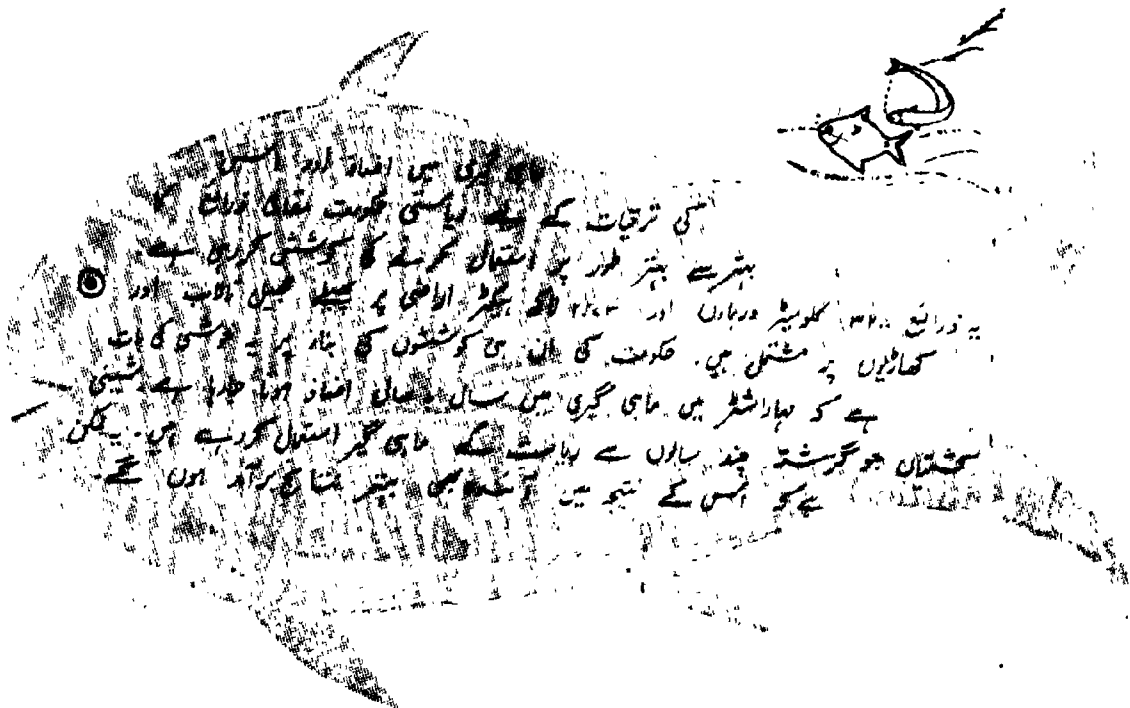 ماہی گیری میں اضافہ اور اس
کی ترقیات کے لئے ریاستی حکومت مقامی ذرائع کا
بہتر سے بہتر طور پر استعمال کرنے کی کوشش کر رہی ہے۔
یہ ذرائع ۳۲۰۰ کلومیٹر دریاؤں اور لاکھ ہیکٹر اراضی پر پھیلے جھیل تالاب اور
کھاڑیوں پر مشتمل ہیں۔ حکومت کی ان ہی کوششوں کی بناء پر یہ خوشی کی بات
ہے کہ مہاراشٹر میں ماہی گیری میں سال بہ سال اضافہ ہوتا جا رہا ہے۔ مشینی
کشتیاں جو گزشتہ چند سالوں سے ریاست کے ماہی گیر استعمال کر رہے ہیں۔ یہ ممکن
ہے کہ اس کے نتیجہ میں آئندہ بھی بہتر نتائج برآمد ہوں گے۔